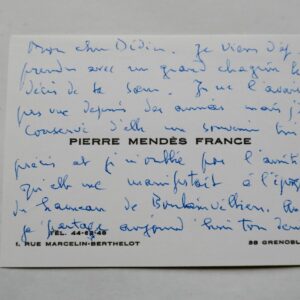 Mon cher Didier. Je viens d'ap
prendre avec un grand chagrin le
décès de ta sœur. Je ne l'avais
pas vue depuis des années mais j'
conserve d'elle un souvenir
PIERRE MENDÈS FRANCE
précis et je n'oublie pas l'amitié
qu'elle me manifestait à l'époque
du hameau de Boulainvilliers.
je partage aujourd'hui ton
TEL. 44-62-46
1. RUE MARCELIN-BERTHELOT 38 GRENOBL